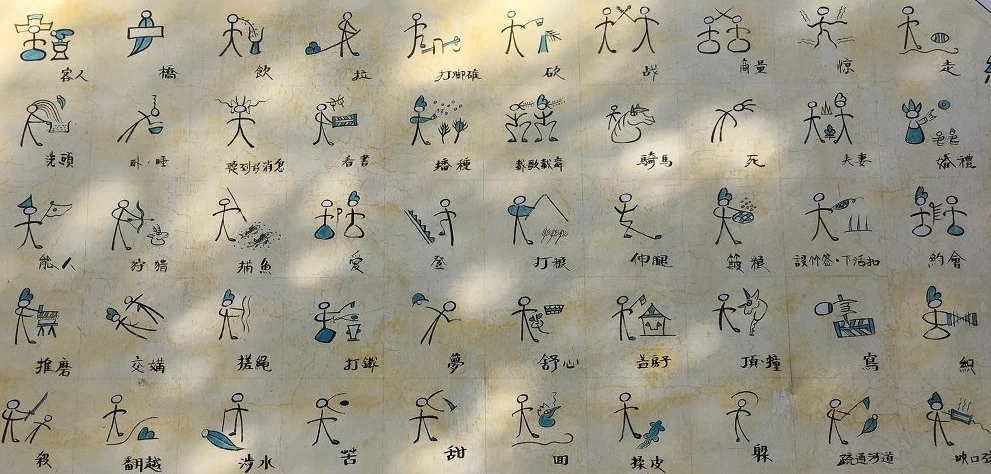 客人 橋 飲 拉 打脚碓 砍 战 商量 惊 走
洗頭 卧·睡 聽到好消息 看書 播種 載歌載舞 騎馬 死 夫妻 婚禮
能人 狩猎 捕魚 愛 登 打粮 伸腿 簸粮 設竹签·下活扣 約會
推磨 交媾 搓繩 打鐵 夢 舒心 当房子 頂·撞 寫 織
殺 翻越 涉水 苦 甜 回 揉皮 躲 疏通河道 吹口弦